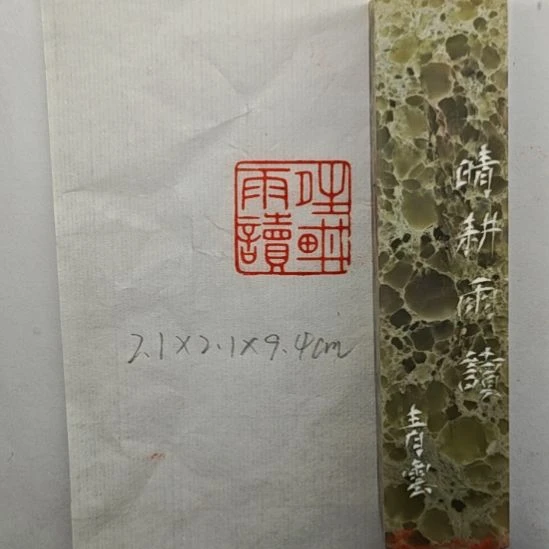 夝畊
雨讀
2.1X2.1X9.4cm
晴耕雨讀
青雲